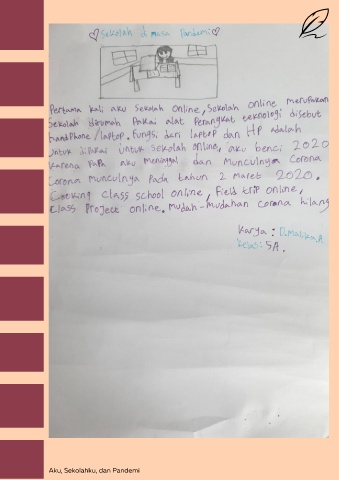 ♡Sekolah di masa Pandemi♡
Pertama kali aku sekolah online, Sekolah online merupakan
Sekolah dirumah Pakai alat Perangkat teknologi disebut
handphone/laptop. fungsi dari laptop dan HP adalah
Untuk dipakai untuk sekolah online, aku benci 2020
karena Papa aku meninggal dan munculnya Corona
Corona munculnya Pada tahun 2 maret 2020.
Cooking class school online, Field trip online,
Class Project online. mudah-mudahan corona hilang
Karya : D.Malika.A
Kelas: 5A.
Aku, Sekolahku, dan Pandemi